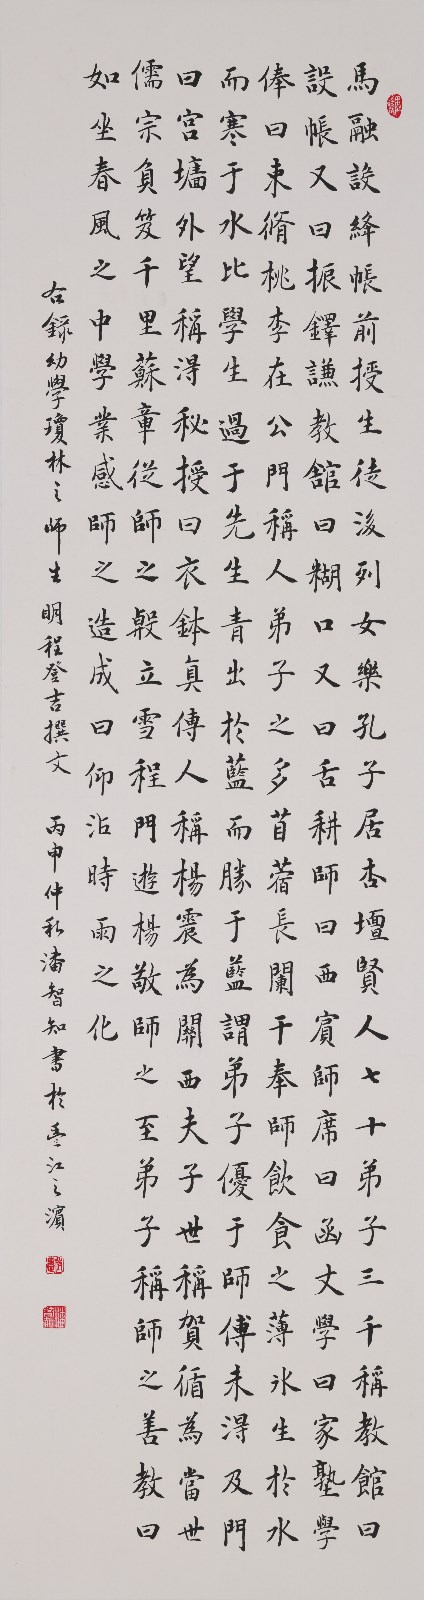 馬融設絳帳前授生徒後列女樂孔子居杏壇賢人七十弟子三千稱教館曰
設帳又曰振鐸謙教舘曰糊口又曰舌耕師曰西賓師席曰函丈學曰家塾學
俸曰束脩桃李在公門稱人弟子之多苜蓿長闌干奉師飲食之薄冰生於水
而寒于水比學生過于先生青出於藍而勝于藍謂弟子優于師傅未得及門
曰宮墻外望稱得秘授曰衣鉢真傳人稱楊震為關西夫子世稱賀循為當世
儒宗負笈千里蘇章從師之殷立雪程門遊楊敬師之至弟子稱師之善教曰
如坐春風之中學業感師之造成曰仰沾時雨之化
右錄幼學瓊林之師生 明程登吉撰文 丙申仲秋潘智知書於江之濱